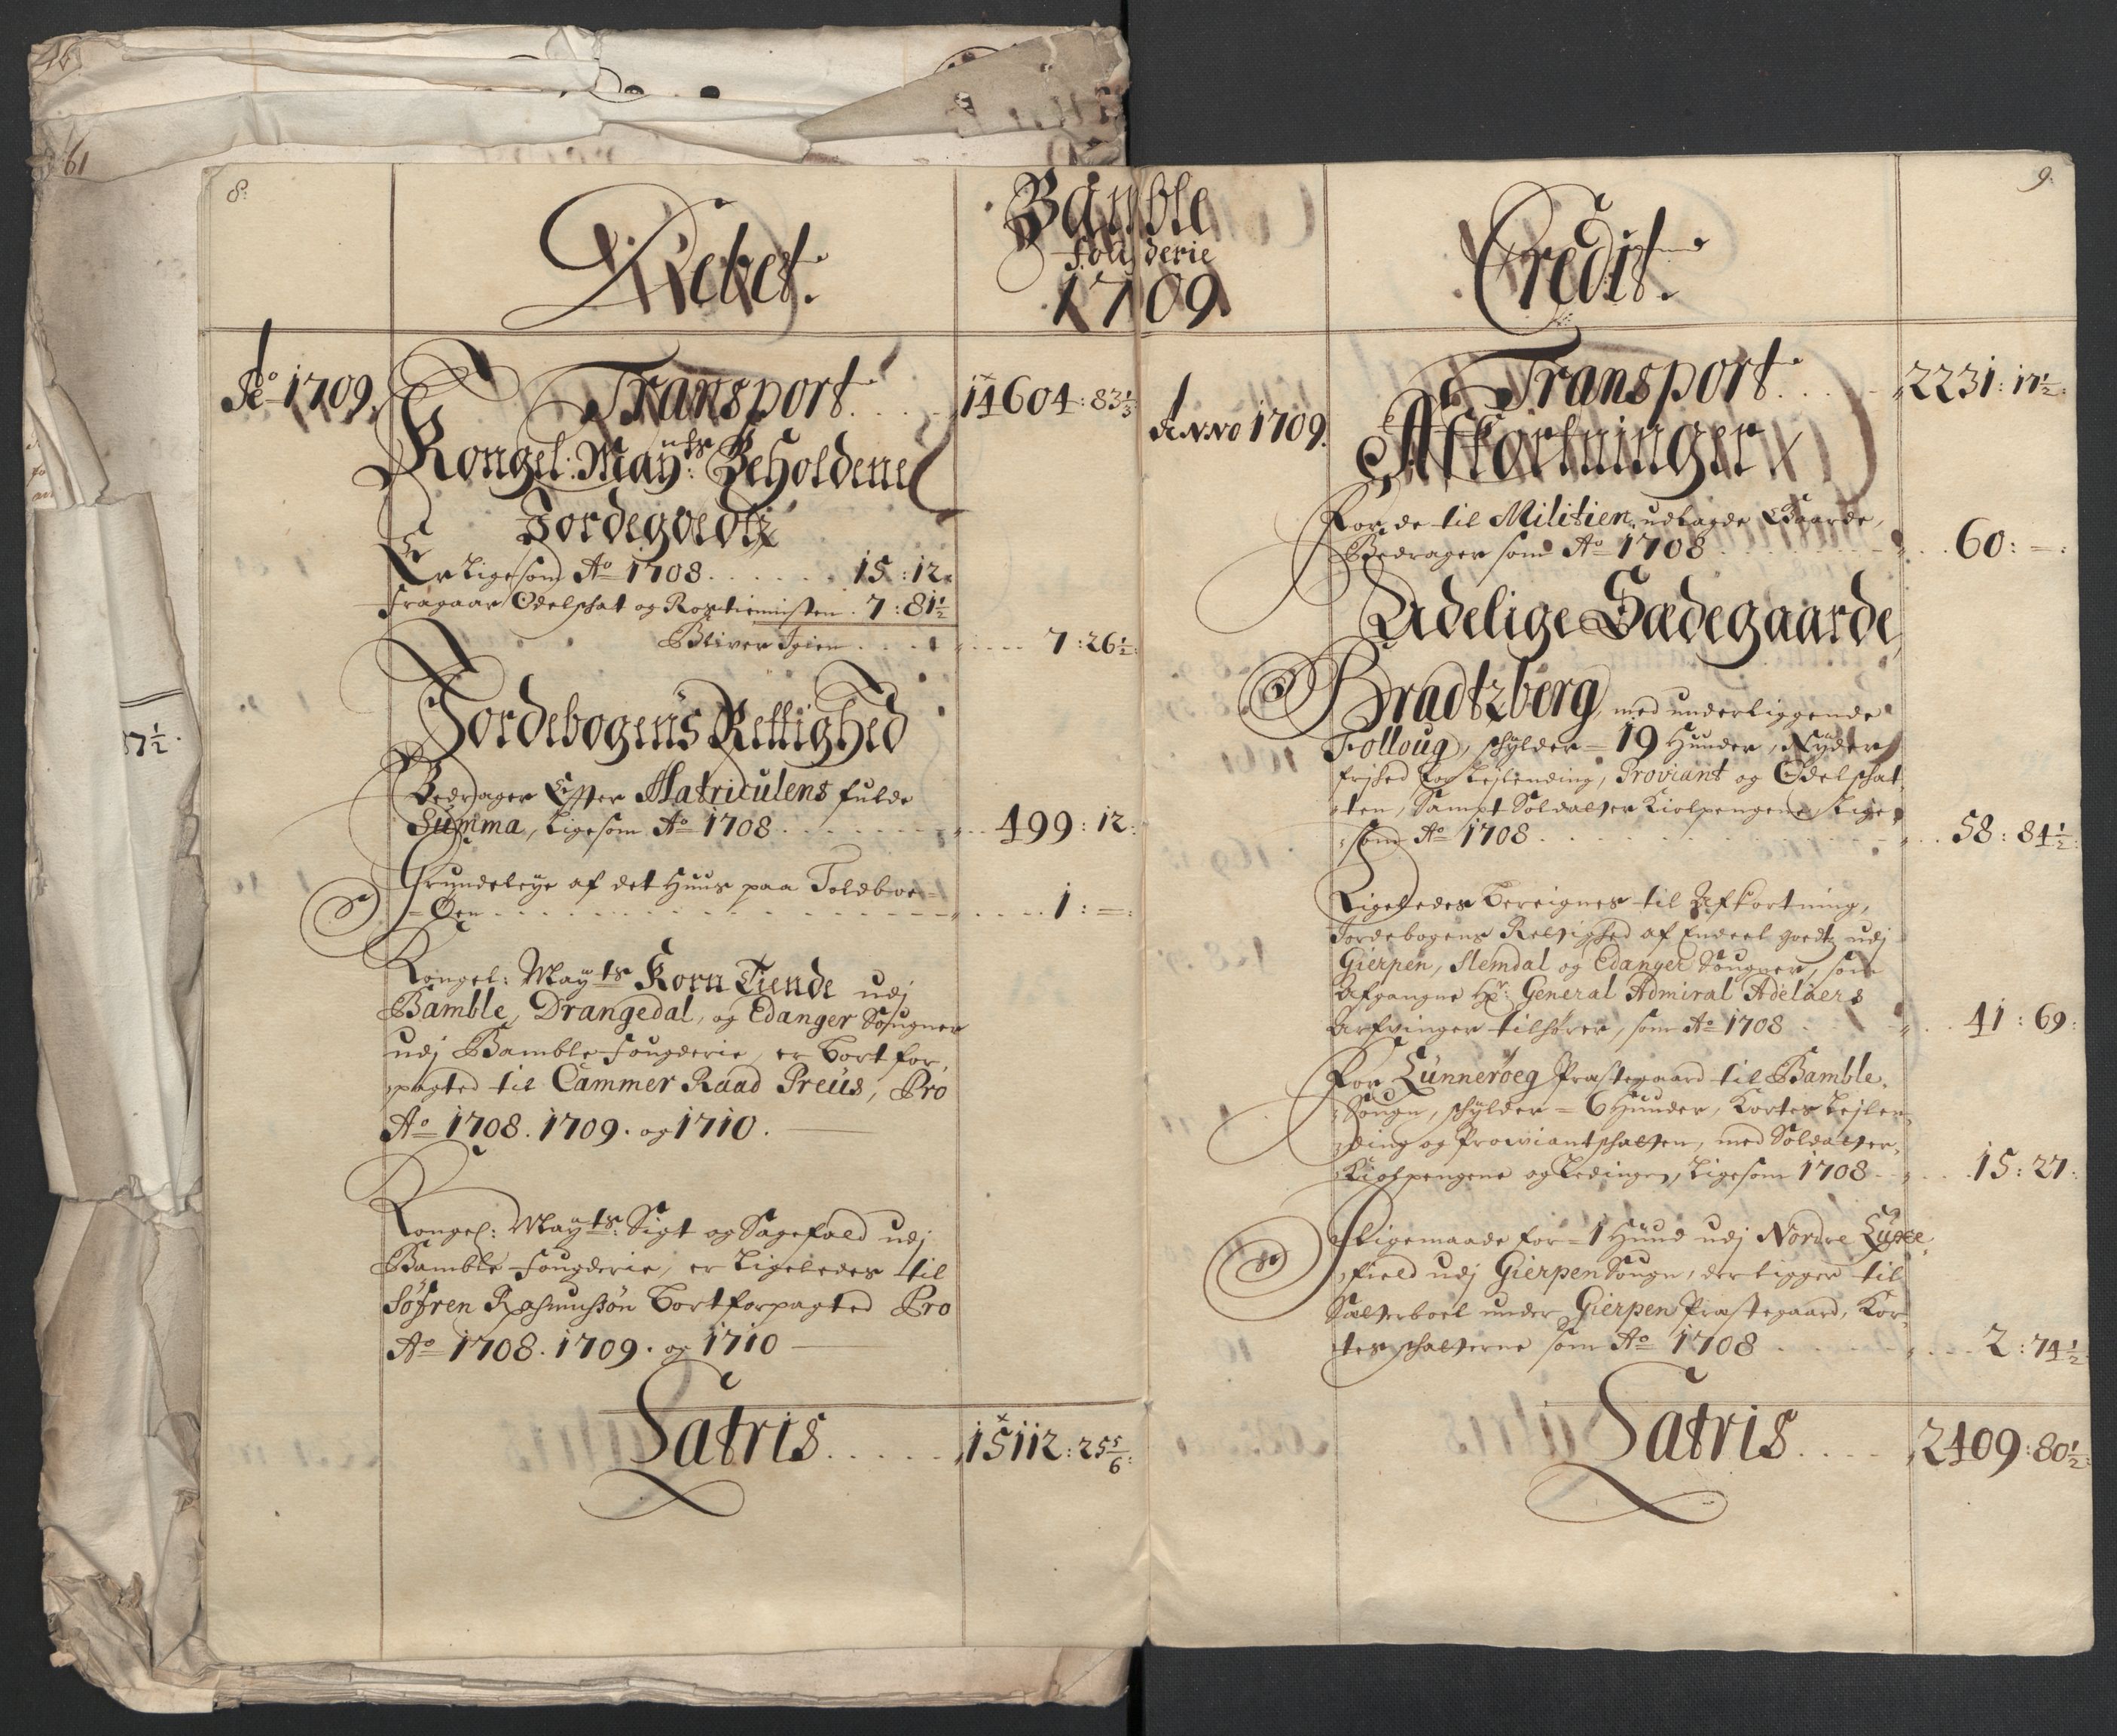 8:
Debet.
Bamble
Fougderie
1709
Ao 1709.
Transport . . . 14604: 83 1/3
Kongel: Mayts: Beholdene
Jordegoedtz
Er Ligesom Ao 1708 . . . . . . 15 : 12:
Fragaar Odelschat og Rostienisten . 7 : 81 1/2
Bliver Igien . . . . 7 : 26 1/2:
Jordebogens Rettighed
Bedrager Efter Matriculens fulde
Summa, Ligesom Ao 1708 . . . . 499 : 12:
Grundeleye af det Huus paa Toldboe=
=Øen . . . . . . 1 : = :
Kongel: Mayts Korn Tiende udj
Bamble, Drangedal, og Edanger Sougner
udj Bamble Fougderie, er bortfor,
pagted til Cammer Raad Preus, Pro
Ao 1708. 1709. og 1710.
Kongel: Mayts: Sigt og Sagefald udj
Bamble Fougderie, er Ligeledes til
Söfren Rasmussön bortforpagted Pro
Ao 1708. 1709. og 1710
Latris . . . . . 15112: 25 5/6:
9:
Credit.
Anno 1709.
Transport . . . . 2231: 17 1/2:
Afkortninger
For de til Militien udtagde Gaarde,
Bedrager som Ao 1708 . . . . 60: = :
Adelige Sædegaarde
Bradtzberg, med underliggende
Folloug, schylder = 19 Hunder, Nyder
frihed for Leylending, Proviant og Odelschat
ten, Sampt Soldatter Kiolpengene, Lige,
som Ao 1708 . . . . 58: 84 1/2:
Ligeledes bereignes til Afkortning,
Jordebogens Rettighed af Endeel goedtz udj
Gierpen, Slemdal og Edanger Sougner, som
Afgangne Hr: General Admiral Adelaers
Arfvinger tilhører, som Ao 1708 . . 41 : 69:
For Lunneröeg Præstegaard til Bamble,
Sougn, schylder = 6 Hunder, Kortes Leylen,
ding og Proviantschatten, med Soldatter,
Kiolpengene og Ledingen, Ligesom 1708 . . . 15: 27:
Sligemaade for = 1 Hund udj Nordre
field udj Gierpen Sougn, der ligger til
under Gierpen Præstegaard, Kor,
tes schatterne som Ao 1708 . . . . 2 : 74 1/2:
Latris . . . . 2409: 80 1/2:
61
87 1/2.